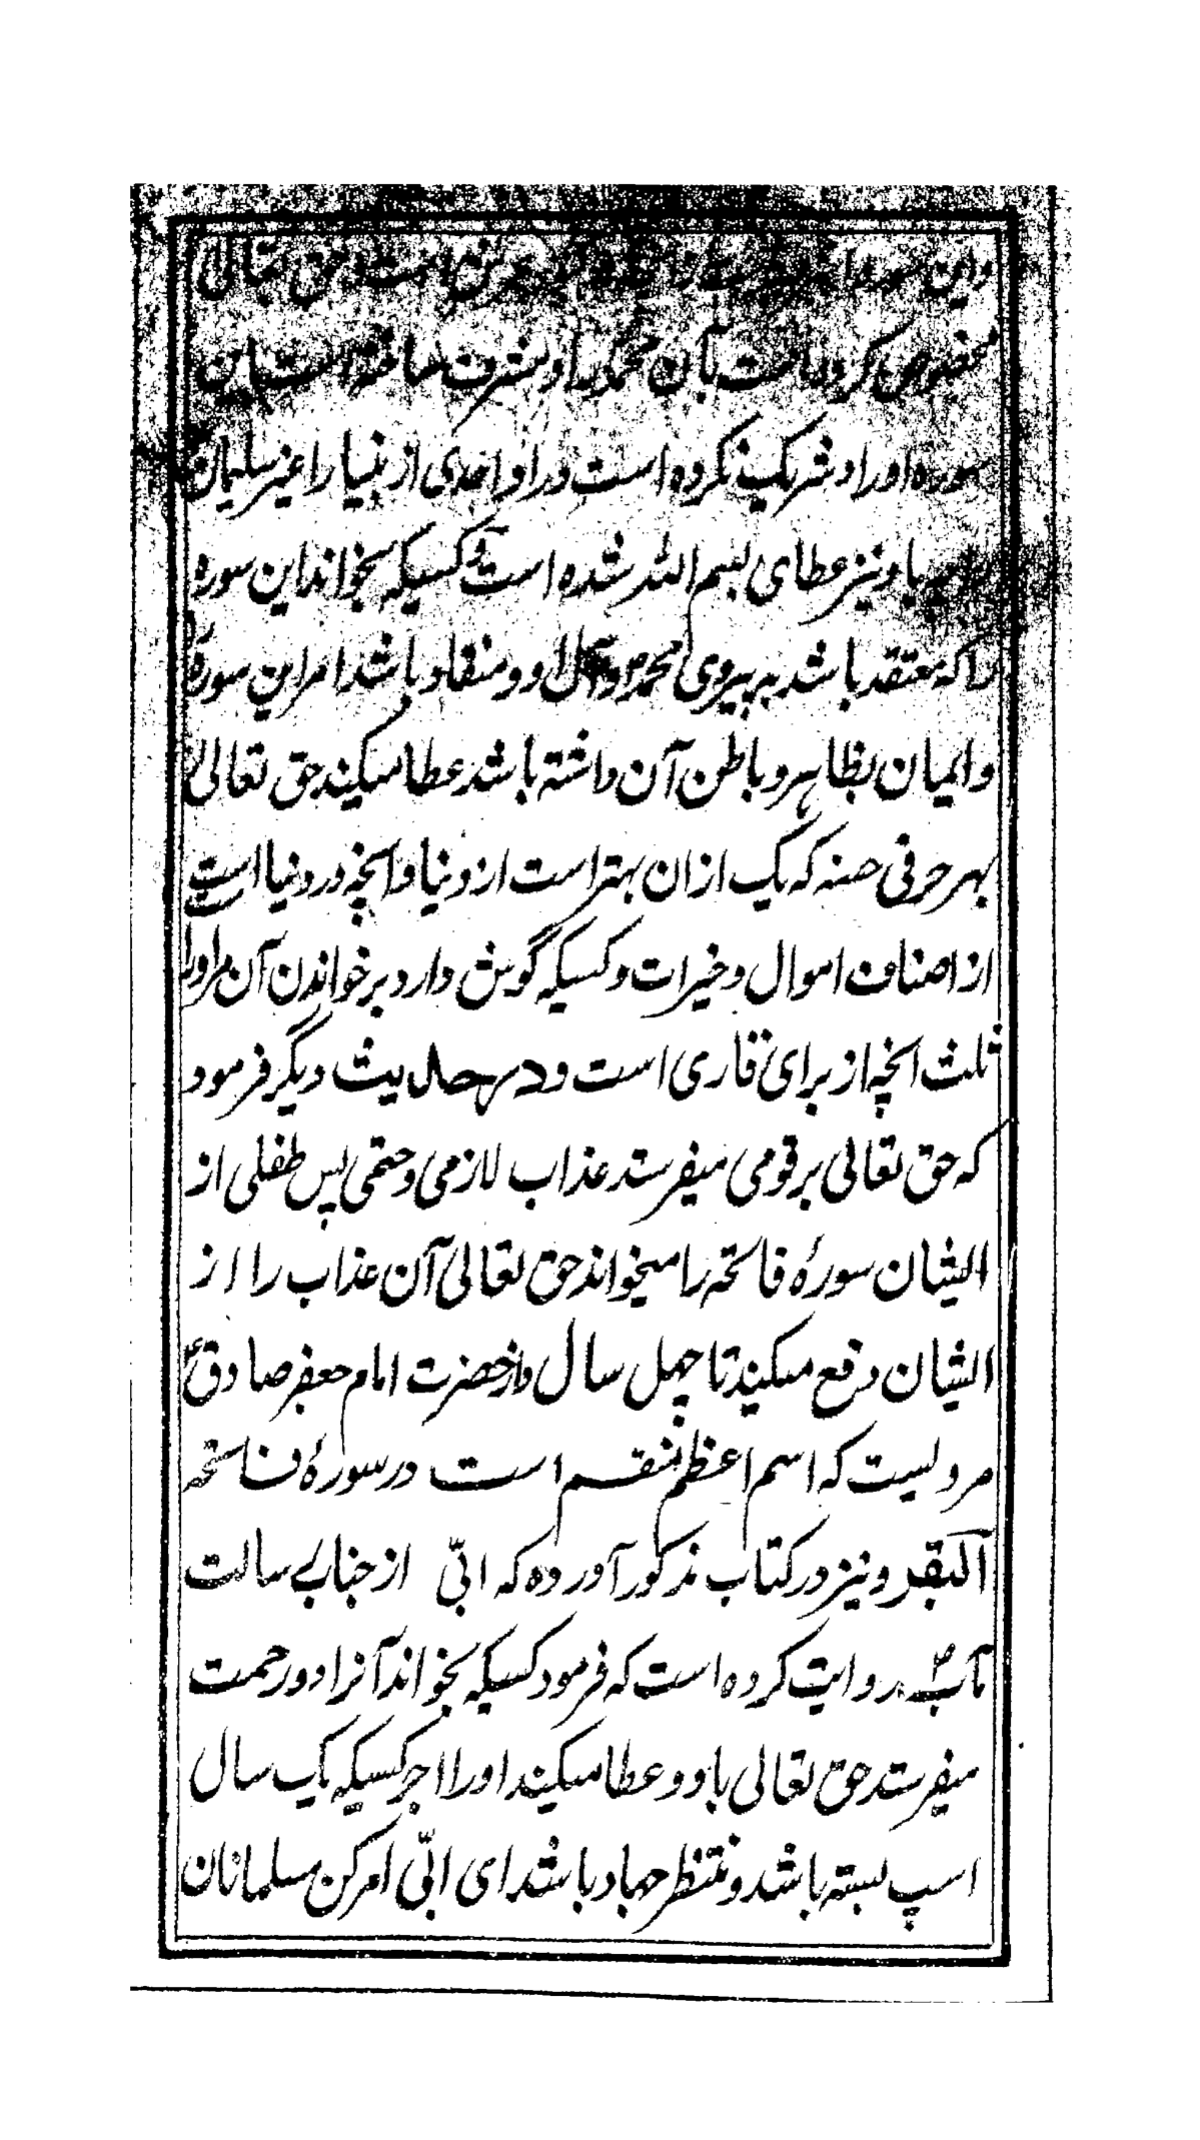 و این سوره حق تعالی
مخصوص کرده است بآن محمد را و مشرف ساخته است باین
سوره اورا و شریک نکرده است درا و احدی از انبیا را غیر سلیمان
با و نیز عطای بسم اللہ شده است و کسیکه بخواند این سوره
را که معتقد باشد به پیروی محمد و آل او و منقاد باشد امر این سورهٔ
و ایمان بظاهر و باطن آن داشته باشد عطا میکند حق تعالی
بهر حرفی حسنه که یک ازان بهتر است از دنیا و آنچه در دنیا است
از اصناف اموال و خیرات و کسیکه گوش دارد بر خواندن آن مراورا
ثلث آنچه از برای قاری است و در حدیث دیگر فرمود
که حق تعالی بر قومی میفرستد عذاب لازمی و حتمی پس طفلی از
ایشان سورهٔ فاتحه را میخواند حق تعالی آن عذاب را از
ایشان رفع میکند تا چهل سال و از حضرت امام جعفر صادق ع
مرویست که اسم اعظم منقسم است در سورهٔ فاتحه
البقر و نیز در کتاب مذکور آورده که ابیّ از جناب رسالت
مآب ص روایت کرده است که فرمود کسیکه بخواند آنرا دو رحمت
میفرستد حق تعالی باو و عطا میکند اورا اجر کسیکه یک سال
اسپ بسته باشد و منتظر جهاد باشد ای ابیّ امر کن مسلمانان